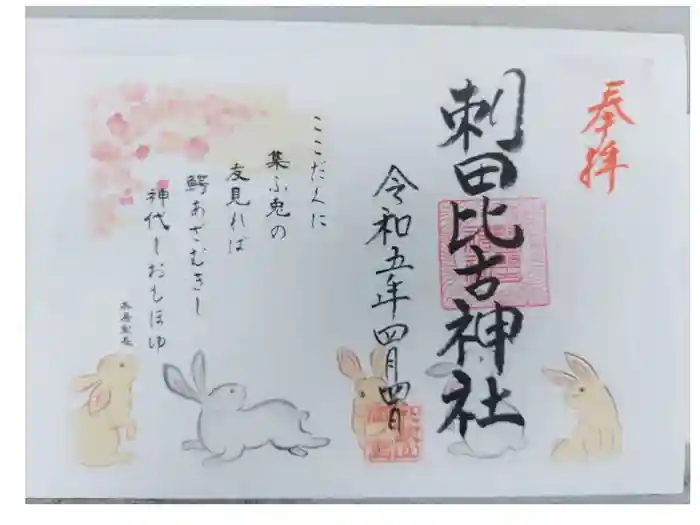 奉拝
刺田比古神社
令和五年四月四日
ここだくに
集ふ兎の
友見れば
鰐あざむきし
神代しおもほゆ